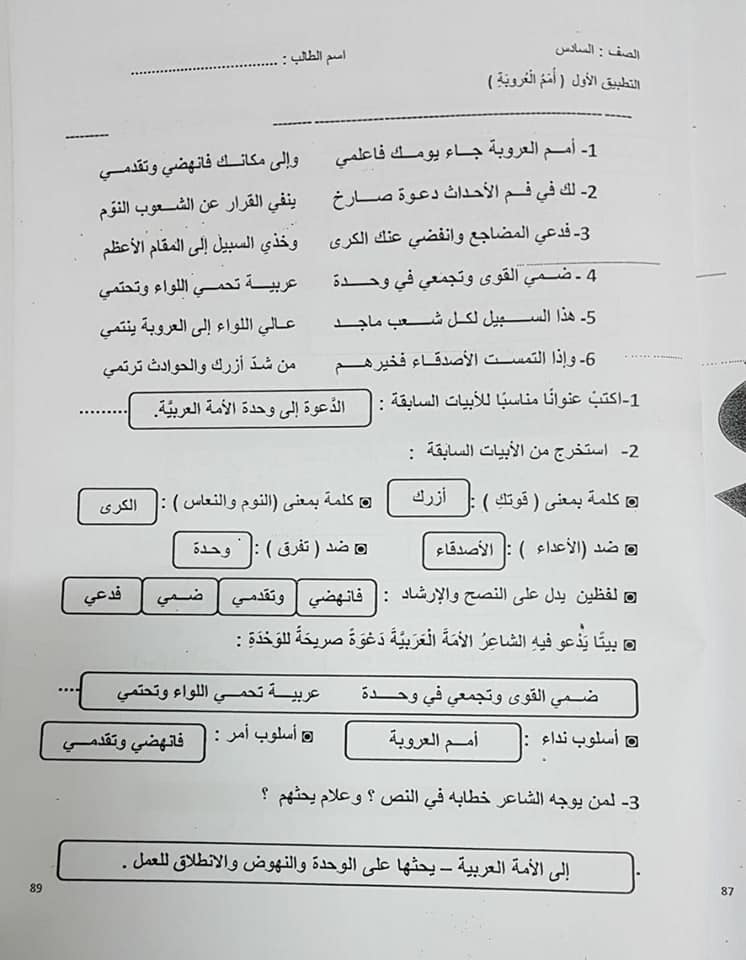 الصف : السادس اسم الطالب : ..................................
التطبيق الأول ( أُمَمُ الْعُروبَةِ )
1- أمـم العروبة جـاء يومـك فاعلمي وإلى مكانـك فانهضي وتقدمـي
2- لك في فـم الأحداث دعوة صـارخ ينفي القرار عن الشـعوب النوّم
3- فدعي المضاجع وانفضي عنك الكرى وخذي السبيل إلى المقام الأعظم
4 - ضـمي القوى وتجمعي في وحـدة عربيـة تحمـي اللواء وتحتمي
5- هذا السـبيل لكل شـعب ماجـد عـالي اللواء إلى العروبة ينتمي
6- وإذا التمسـت الأصدقـاء فخيرهـم من شدّ أزرك والحوادث ترتمي
1-اكتبْ عنوانًا مناسبًا للأبيات السابقة : الدَّعوة إلى وحدة الأمة العربيَّة. .........
2- استخرج من الأبيات السابقة :
◙ كلمة بمعنى ( قوتكِ ) : أزرك ◙ كلمة بمعنى (النوم والنعاس ) : الكرى
◙ ضد (الأعداء ) : الأصدقاء ◙ ضد ( تفرق ) : وحدة
◙ لفظين يدل على النصح والإرشاد : فانهضي وتقدمـي ضـمي فدعي
◙ بيتًا يَدْعو فيهِ الشاعِرُ الأمَةَ الْعَرَبيَّةَ دَعْوَةً صريحَةً للوَحْدَةِ :
ضـمي القوى وتجمعي في وحـدة عربيـة تحمـي اللواء وتحتمي ....
◙ أسلوب نداء : أمـم العروبة ◙ أسلوب أمر : فانهضي وتقدمـي
3- لمن يوجه الشاعر خطابه في النص ؟ وعلام يحثهم ؟
إلى الأمة العربية – يحثها على الوحدة والنهوض والانطلاق للعمل .
89
87